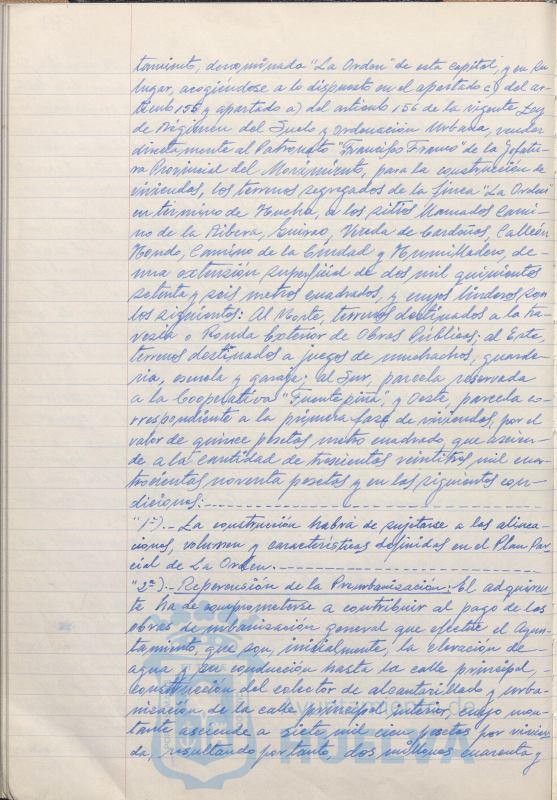 tamiento, denominada "La Orden" de esta capital, y en su
lugar, acogiéndose a lo dispuesto en el apartado c) del ar-
tículo 155 y apartado a) del artículo 156 de la vigente Ley
de Régimen del Suelo y Ordenación Urbana, vender
directamente al Patronato "Francisco Franco" de la Jefatu-
ra Provincial del Movimiento, para la construcción de
viviendas, los terrenos segregados de la finca "La Orden"
en término de Huelva, a los sitios llamados Cami-
no de la Ribera, Vereda de Cardeñas, Callejón
Hondo, Camino de la Ciudad y Humilladero, de
una extensión superficial de dos mil quinientos
setenta y seis metros cuadrados, y cuyos linderos son
los siguientes: Al Norte, terrenos destinados a la tra-
vesía o Ronda Exterior de Obras Públicas; al Este,
terrenos destinados a juegos de muchachos, guarde-
ría, escuela y garaje; al Sur, parcela reservada
a la Cooperativa "Fuentepiña", y Oeste, parcela co-
rrespondiente a la primera fase de viviendas, por el
valor de quince pesetas metro cuadrado, que ascien-
de a la cantidad de trescientas veintitres mil cua-
trocientas noventa pesetas y en las siguientes con-
diciones:
"1ª).- La construcción habrá de sujetarse a las alinea-
ciones, volumen y características definidas en el Plan Par-
cial de La Orden.
"2ª).- Repercusión de la Preurbanización: El adquiren-
te ha de comprometerse a contribuir al pago de las
obras de urbanización general que efectúe el Ayun-
tamiento, que son, inicialmente, la elevación de
agua y su conducción hasta la calle principal,
construcción del colector de alcantarillado y urba-
nización de la calle principal interior, cuyo mon-
tante asciende a siete mil cien pesetas por vivien-
da, resultando por tanto, dos millones cuarenta y
Ayuntamiento de
HUELVA